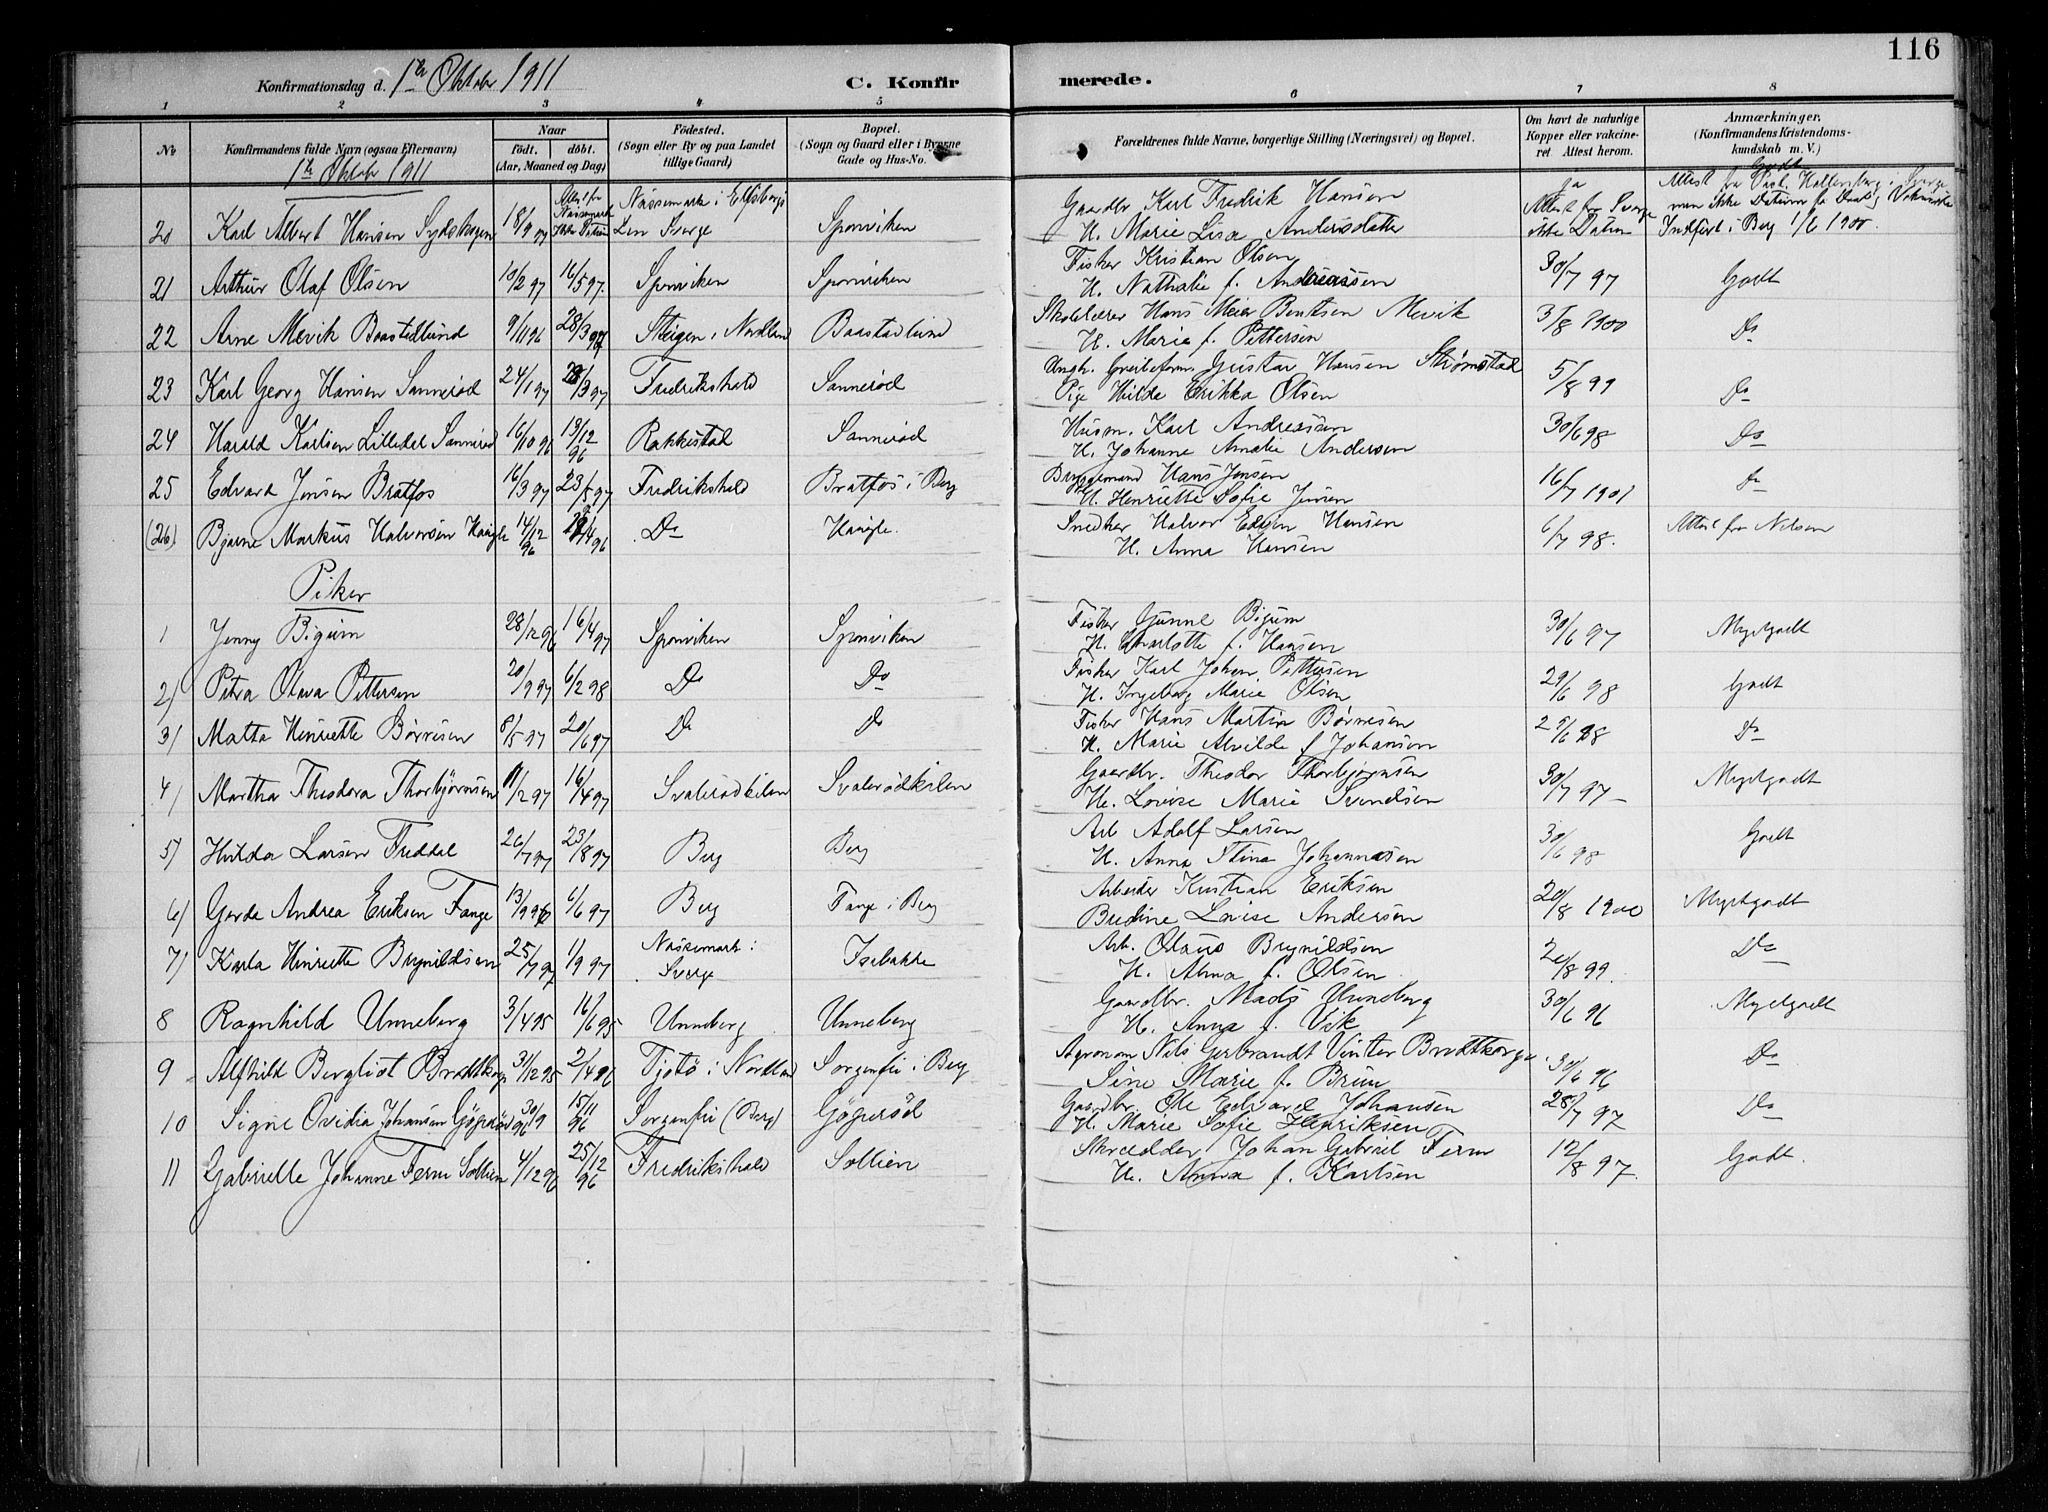 116
Konfirmationsdag d. 1ste Oktober 1911 C. Konfirmerede.
1 2 3 4 5 6 7 8
No
Konfirmandens fulde Navn (ogsaa Efternavn)
Naar
födt. döbt.
(Aar, Maaned og Dag)
Födested.
(Sogn eller By og paa Landet tillige Gaard)
Bopæl.
(Sogn og Gaard eller i Byerne Gade og Hus-No.)
Forældrenes fulde Navne, borgerlige Stilling (Næringsvei) og Bopæl.
Om havt de naturlige Kopper eller vakcineret. Attest herom.
Anmærkninger.
(Konfirmandens Kristendomskundskab m. V.)
1ste Oktober 1911
Godt
20 Karl Albert Hansen Sydskogen 18/9 97 Nössemark i Elfsborgs Len Sverge Sponviken Gaardbr Karl Fredrik Hansen ja
H. Marie Lisa Andersdatter Attest fra Sverge ikke Datum Indført i Berg 1/6 1900.
21 Arthur Olaf Olsen 10/2 97 16/5 97. Sponviken Sponviken Fisker Kristian Olsen 30/7 97 Godt
H. Nathalie f. Andreassen
22 Arne Mevik Baastadlund 9/11 96 28/3 97 Steigen i Nordland Baastadlund Skolelærer Hans Meier Bentsen Mevik 3/8 1900 Do
H. Marie f. Pettersen
23 Karl Georg Hansen Sannerød 24/1 97 28/3 97 Fredrikshald Sannerød Ungk. Gustav Hansen Strømstad 5/8 99 Do
Pige Hilda Erikka Olsen
24 Harald Karlsen Lilledal Sannerød 16/10 96 13/12 96 Rakkestad Sannerød Husm. Karl Andreassen 30/6 98 Do
H. Johanne Amalie Andersen
25 Edvard Jensen Bratfos 16/3 97 23/5 97 Fredrikshald Bratfos i Berg Bryggemand Hans Jensen 16/7 1901 Do
H. Henriette Sofie Jensen
(26) Bjarne Markus Halvorsen 14/12 96 Do Snedker Halvor Edvin Hansen 6/7 98. Attest fra Nilsen
H. Anna Hansen
Piker
1 Jenny Bigum 28/12 96 16/4 97 Sponviken Sponviken Fisker Gunne Bigum 30/6 97 Megetgodt
H. Charlotte f. Hansen
2) Petra Oleva Pettersen 20/9 97 6/2 98 Do Do Fisker Karl Johan Pettersen 29/6 98 Godt
H. Ingeborg Marie Olsen
3) Matta Henriette Børresen 8/5 97 20/6 97 Do Do Fisker Hans Martin Børresen 29/6 98 Do
H. Marie Alvilde f Johansen
4) Martha Theodora Thorbjørnsen 11/2 97 16/4 97 Svalerødkilen Svalerødkilen Gaardbr. Theodor Thorbjørnsen 30/7 97 Megetgodt
H. Lovise Marie Svendsen
5) Hilda Larsen Freddal 26/7 97 23/8 97 Berg Berg Arb Adolf Larsen 30/6 98 Godt
H. Anna Stina Johannesen
6) Gerda Andrea Eriksen Fange 13/9 96 1/6 97 Berg Fange i Berg Arbeider Kristian Eriksen 20/8 1900 Megetgodt
Bredine Lovise Andersen
7) Karla Henriette Brynildsen 25/7 97 1/9 97 Nössemark i Sverge Isebakke Arb. Olaus Brynildsen 20/8 99. Do
H. Alma f. Olsen
8 Ragnhild Unneberg 3/4 95 16/6 95 Unneberg Unneberg Gaardbr. Mads Unneberg 30/6 96 Megetgodt
H. Anna f. Vik
9 Alfhild Bergliot Brodtkorb 31/12 95 2/4 96 Tjøtø i Nordland Sorgenfri i Berg Agronom Nils Gerbrandt Vinter Brodtkorb 30/6 96 Do
Sine Marie f. Brun
10 Signe Ovidia Johansen Gögerød 30/9 96 15/11 96 Sorgenfri (Berg) Gögerød Gaardbr. Ole Edvard Johansen 28/7 97 Do
H. Marie Sofie Henriksen
11 Gabrielle Johanne Ferm Sollien 4/12 96 25/12 96 Fredrikshald Sollien Skrædder Johan Gabriel Ferm 12/8 97. Godt.
H. Anna f. Karlsen